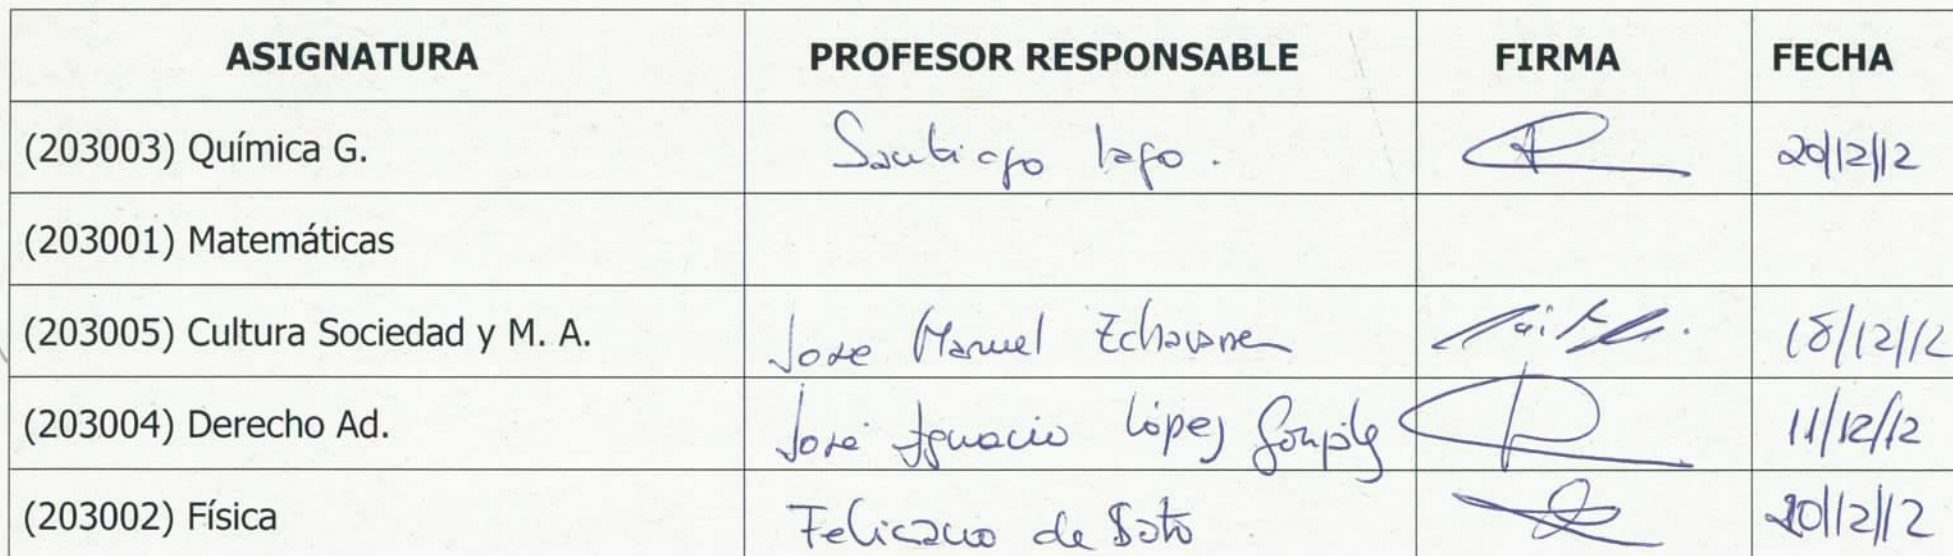 ASIGNATURA PROFESOR RESPONSABLE FIRMA FECHA
(203003) Química G. Santiago Lago. 20/12/12
(203001) Matemáticas
(203005) Cultura Sociedad y M. A. Jose Manuel Echavarren 18/12/12
(203004) Derecho Ad. José Ignacio López González 11/12/12
(203002) Física Feliciano de Soto 20/12/12